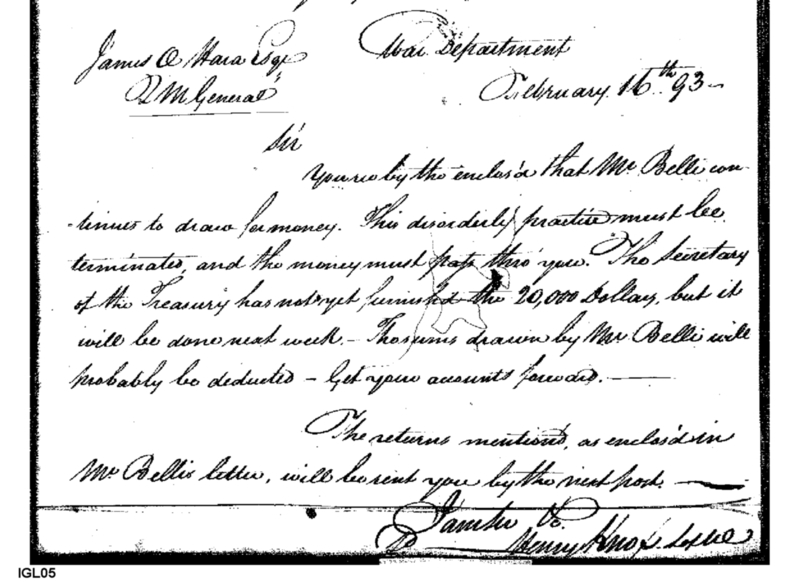 James O Hara Esqr
War Department
Q M General
February 16th 93 -
Sir
You see by the enclos'd that Mr Belli con-
-tinues to draw for money. This disorderly practice must be
terminated, and the money must pass thro' you. The Secretary
of the Treasury has not yet furnished the 20,000 Dollars, but it
will be done next week. - The sums drawn by Mr Belli will
probably be deducted - Get your accounts forward. -
The returns mentioned, as enclos'd in
Mr Bellis letter, will be sent you by the next post. -
I am Sir &c.
Henry Knox
IGL05